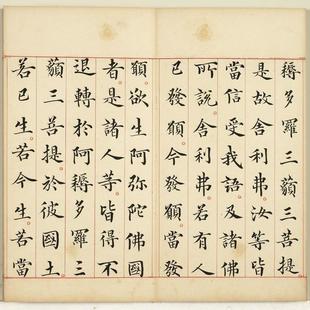 耨多羅三藐三菩提
是故舍利弗汝等皆
當信受我語及諸佛
所說舍利弗若有人
已發願今發願當發
願欲生阿弥陀佛國
者是諸人等皆得不
退轉於阿耨多羅三
藐三菩提於彼國土
若已生若今生若當